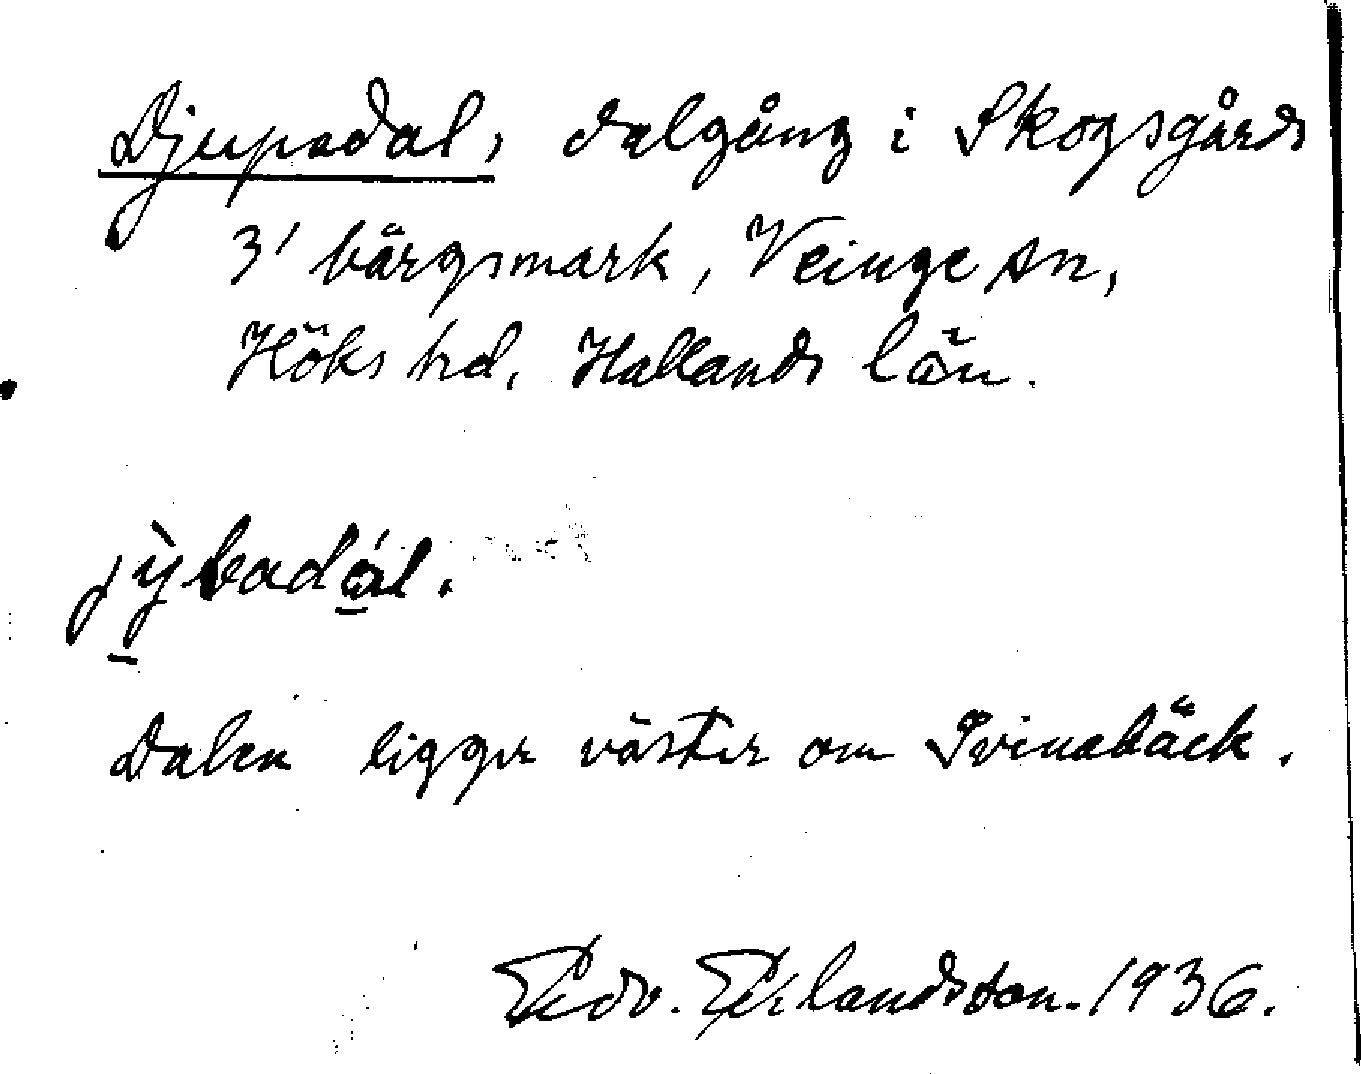 Djupadal, dalgång i Skogsgårds
3' bärgsmark, Veinge sn,
Höks hd, Hallands län.
jỳbadál.
Dalen ligger väster om Svinabäck.
Edv. Erlandsson. 1936.